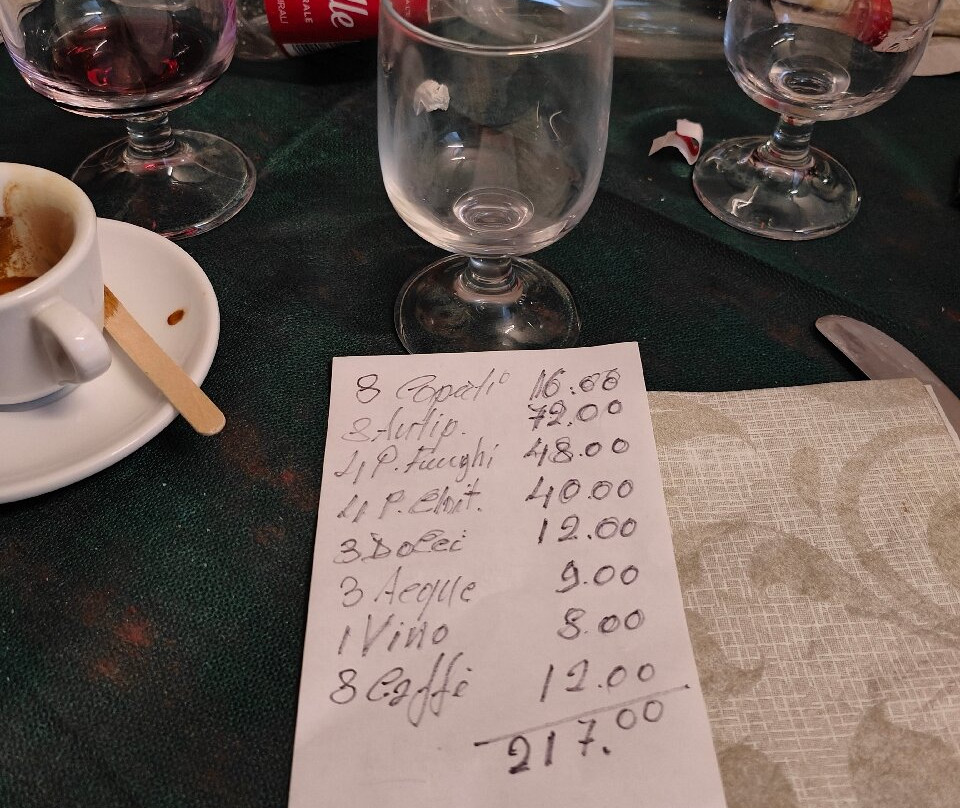 lle
8 Coperti 16.00
8 Antip. 72.00
4 P. Funghi 48.00
4 P. Chit. 40.00
3 Dolci 12.00
3 Acque 9.00
1 Vino 8.00
8 Caffè 12.00
217.00